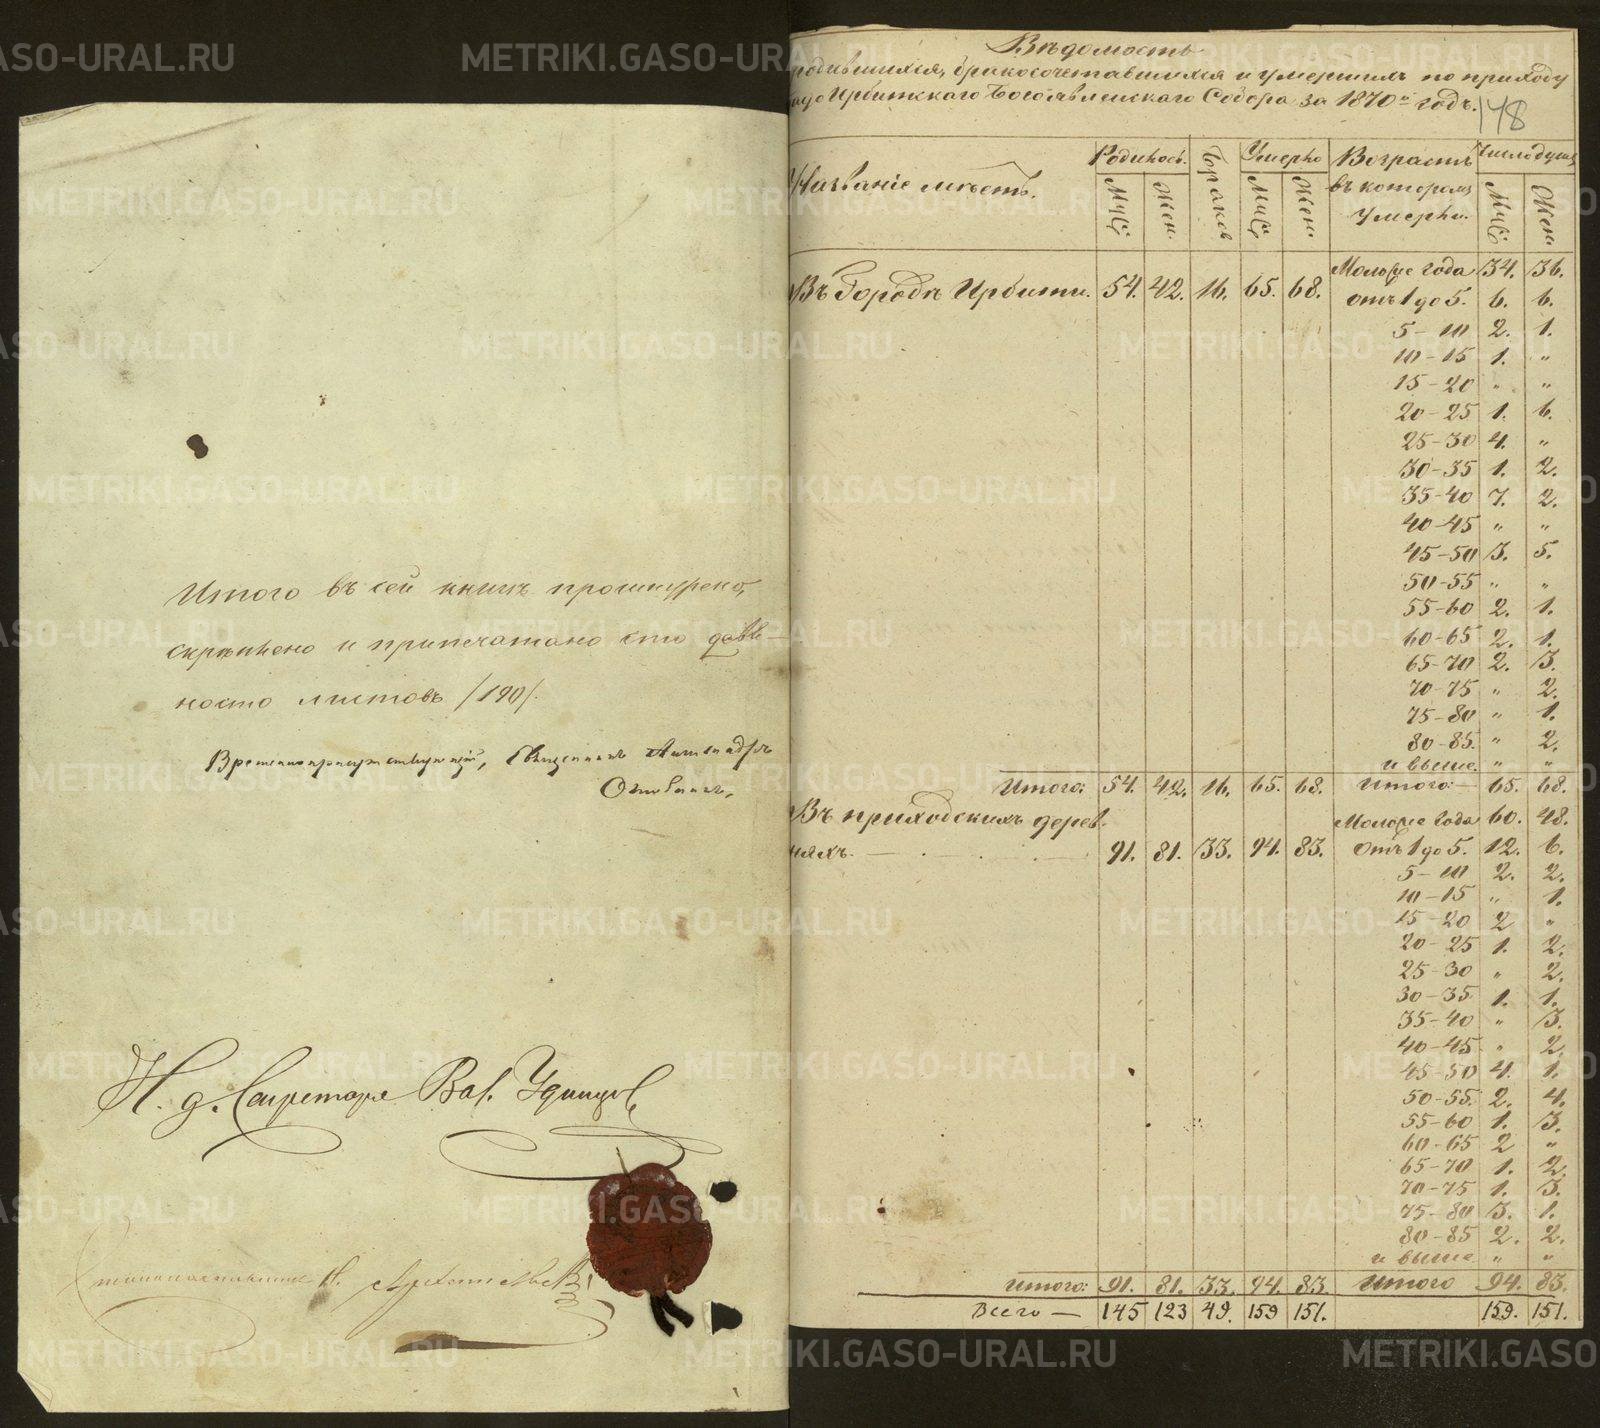 Итого въ сей книгѣ прошнуровано,
скрѣплено и припечатано сто девя-
носто листовъ /190/.
Священникъ Александръ
И. д. Секретаря Вас. Удинцовъ
Вѣдомость
родившихся, бракосочетавшихся и умершихъ по приходу
Ирбитскаго Богоявленскаго Собора за 1870й годъ.
148
Названіе мѣстъ. Родилось. Браковъ Умерло Возрастъ Число душъ
въ которомъ
умерли.
Муж. Жен. Муж. Жен. Муж. Жен.
Въ Городѣ Ирбити. 54. 42. 16. 65. 68. Моложе года 34. 36.
отъ 1 до 5. 6. 6.
5-10 2. 1.
10-15 1. "
15-20 " "
20-25 1. 6.
25-30 4. "
30-35 1. 2.
35-40 7. 2.
40-45 " "
45-50 3. 5.
50-55 " "
55-60 2. 1.
60-65 2. 1.
65-70 2. 3.
70-75 " 2.
75-80 " 1.
80-85. " 2.
и выше. " "
Итого: 54. 42. 16. 65. 68. Итого:— 65. 68.
Въ приходскихъ дерев-
няхъ. — 91. 81. 33. 94. 83. Моложе года 60. 48.
Отъ 1 до 5. 12. 6.
5-10 2. 2.
10-15 " 1.
15-20 2 "
20-25 1. 2.
25-30 " 2.
30-35 1. 1.
35-40 " 3.
40-45 " 2.
45-50 4. 1.
50-55. 2. 4.
55-60 1. 3.
60-65 2 "
65-70 1. 2.
70-75 1. 3.
75-80 3. 1.
80-85 2. 2.
и выше " "
Итого: 91. 81. 33. 94. 83. Итого 94. 83.
Всего — 145 123 49. 159 151. 159. 151.
METRIKI.GASO-URAL.RU